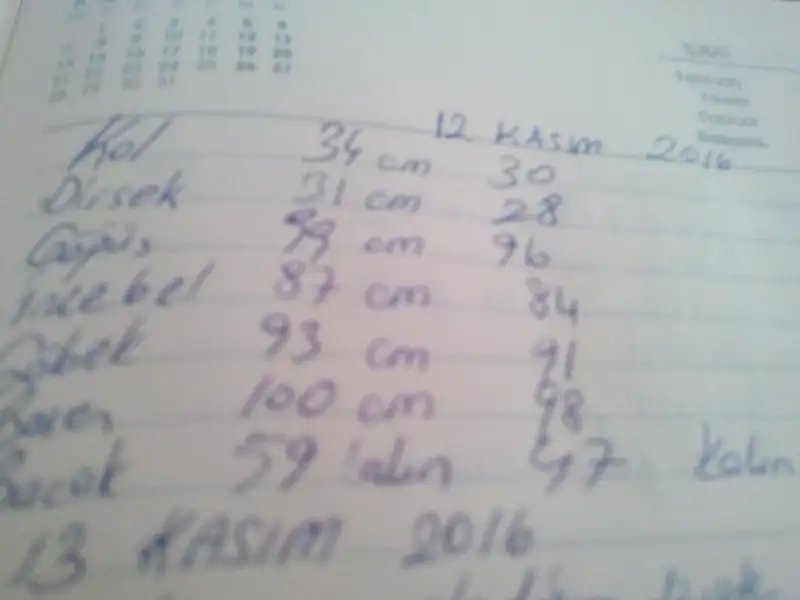 12 KASIM 2016
Kol 34 cm 30
Dirsek 31 cm 28
Göğüs 99 cm 96
incebel 87 cm 84
Göbek 93 cm 91
Basen 100 cm 98
Bacak 59 kalın 47 Kalın
13 KASIM 2016